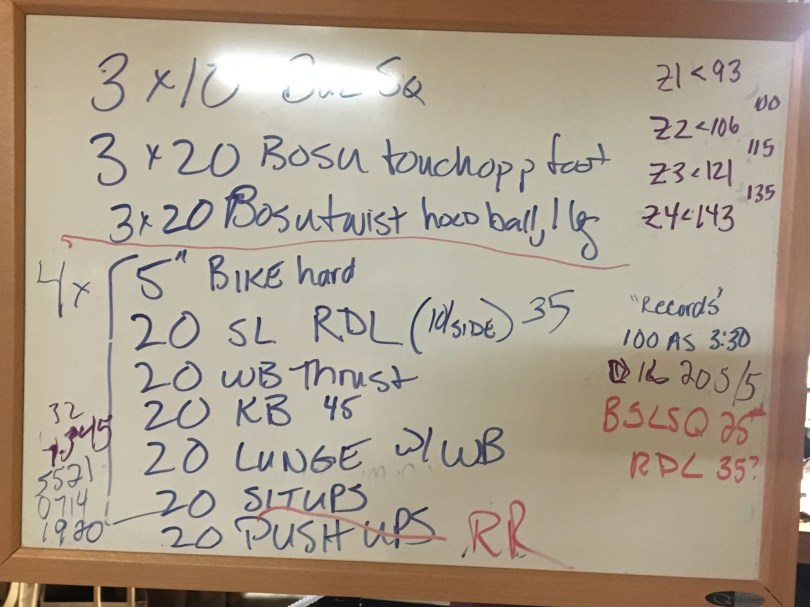 3 x 10 Sq
3 x 20 Bosu touch opp foot
3x20 Bosu twist hoco ball, 1 leg
4x
5" BIKE hard
20 SL RDL (10/SIDE) 35
20 WB Thrust
20 KB 45
20 LUNGE w/ WB
20 SITUPS
20 PUSH UPS RR
32
45
5521
0714
1920
Z1 < 93
100
Z2 < 106
115
Z3 < 121
135
Z4 < 143
"Records"
100 AS 3:30
20 5/5
BSLSQ 25
RDL 35?